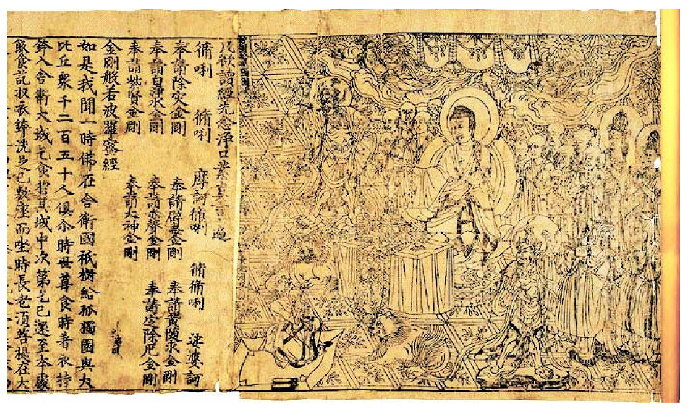 凡欲讀經先念淨口業真言遍
脩唎 脩唎 摩訶脩唎 脩脩唎 娑婆訶
奉請除灾金剛 奉請辟毒金剛 奉請黃隨求金剛
奉請白淨水金剛 奉請赤聲金剛 奉請定除厄金剛
奉請紫賢金剛 奉請大神金剛
金剛般若波羅蜜經
如是我聞一時佛在舍衛國祇樹給孤獨園與大
比丘衆千二百五十人俱尒時世尊食時著衣持
鉢入舍衛大城乞食於其城中次第乞已還至本處
飯食訖收衣鉢洗足已敷座而坐時長老須菩提在大